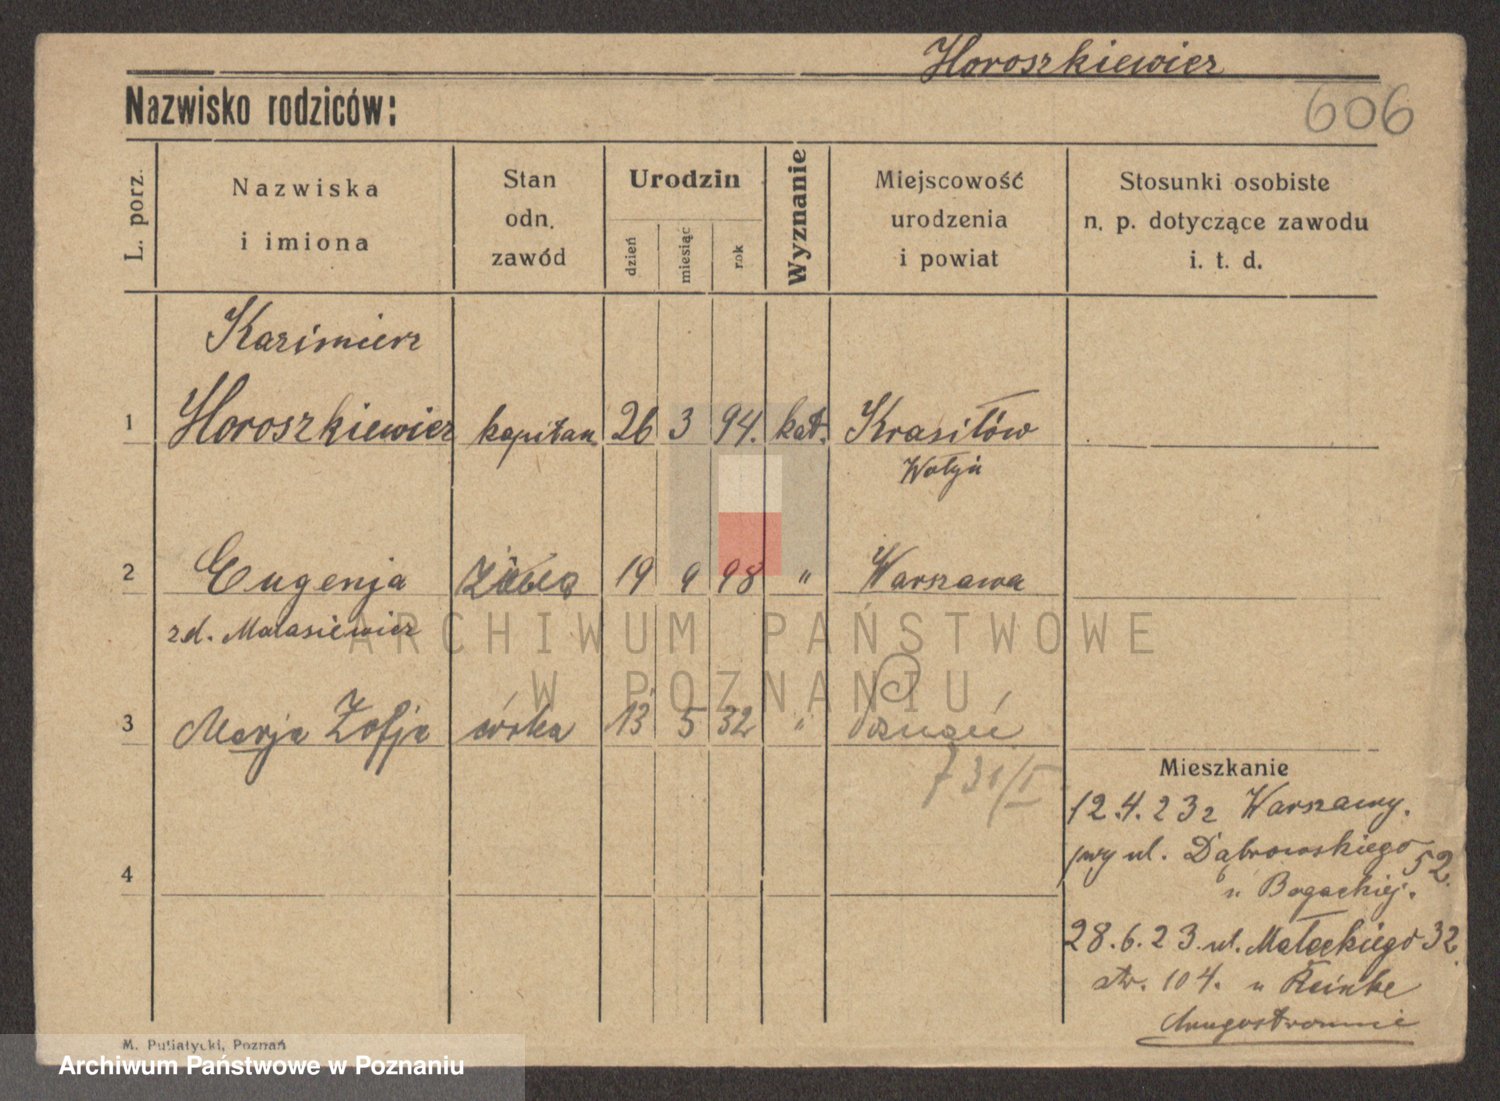 Horoszkiewicz
Nazwisko rodziców:
606
L. porz.
Nazwiska
i imiona
Stan
odn.
zawód
Urodzin
dzień
miesiąc
rok
Wyznanie
Miejscowość
urodzenia
i powiat
Stosunki osobiste
n. p. dotyczące zawodu
i. t. d.
Kazimierz
1 Horoszkiewicz kapitan 26 3 94. kat. Krasiłów
Wołyń
2 Eugenja żona 19 9 98 " Warszawa
z d. Matasiewicz
ARCHIWUM PAŃSTWOWE
W POZNANIU
3 Marja Zofja córka 13 5 32 " Poznań
731/I
Mieszkanie
12.4.23 z Warszawy.
przy ul. Dąbrowskiego 52.
u Bogackiej.
4
28.6.23. ul. Małeckiego 32.
str. 104. u Reinke
M. Putiatycki, Poznań
Archiwum Państwowe w Poznaniu